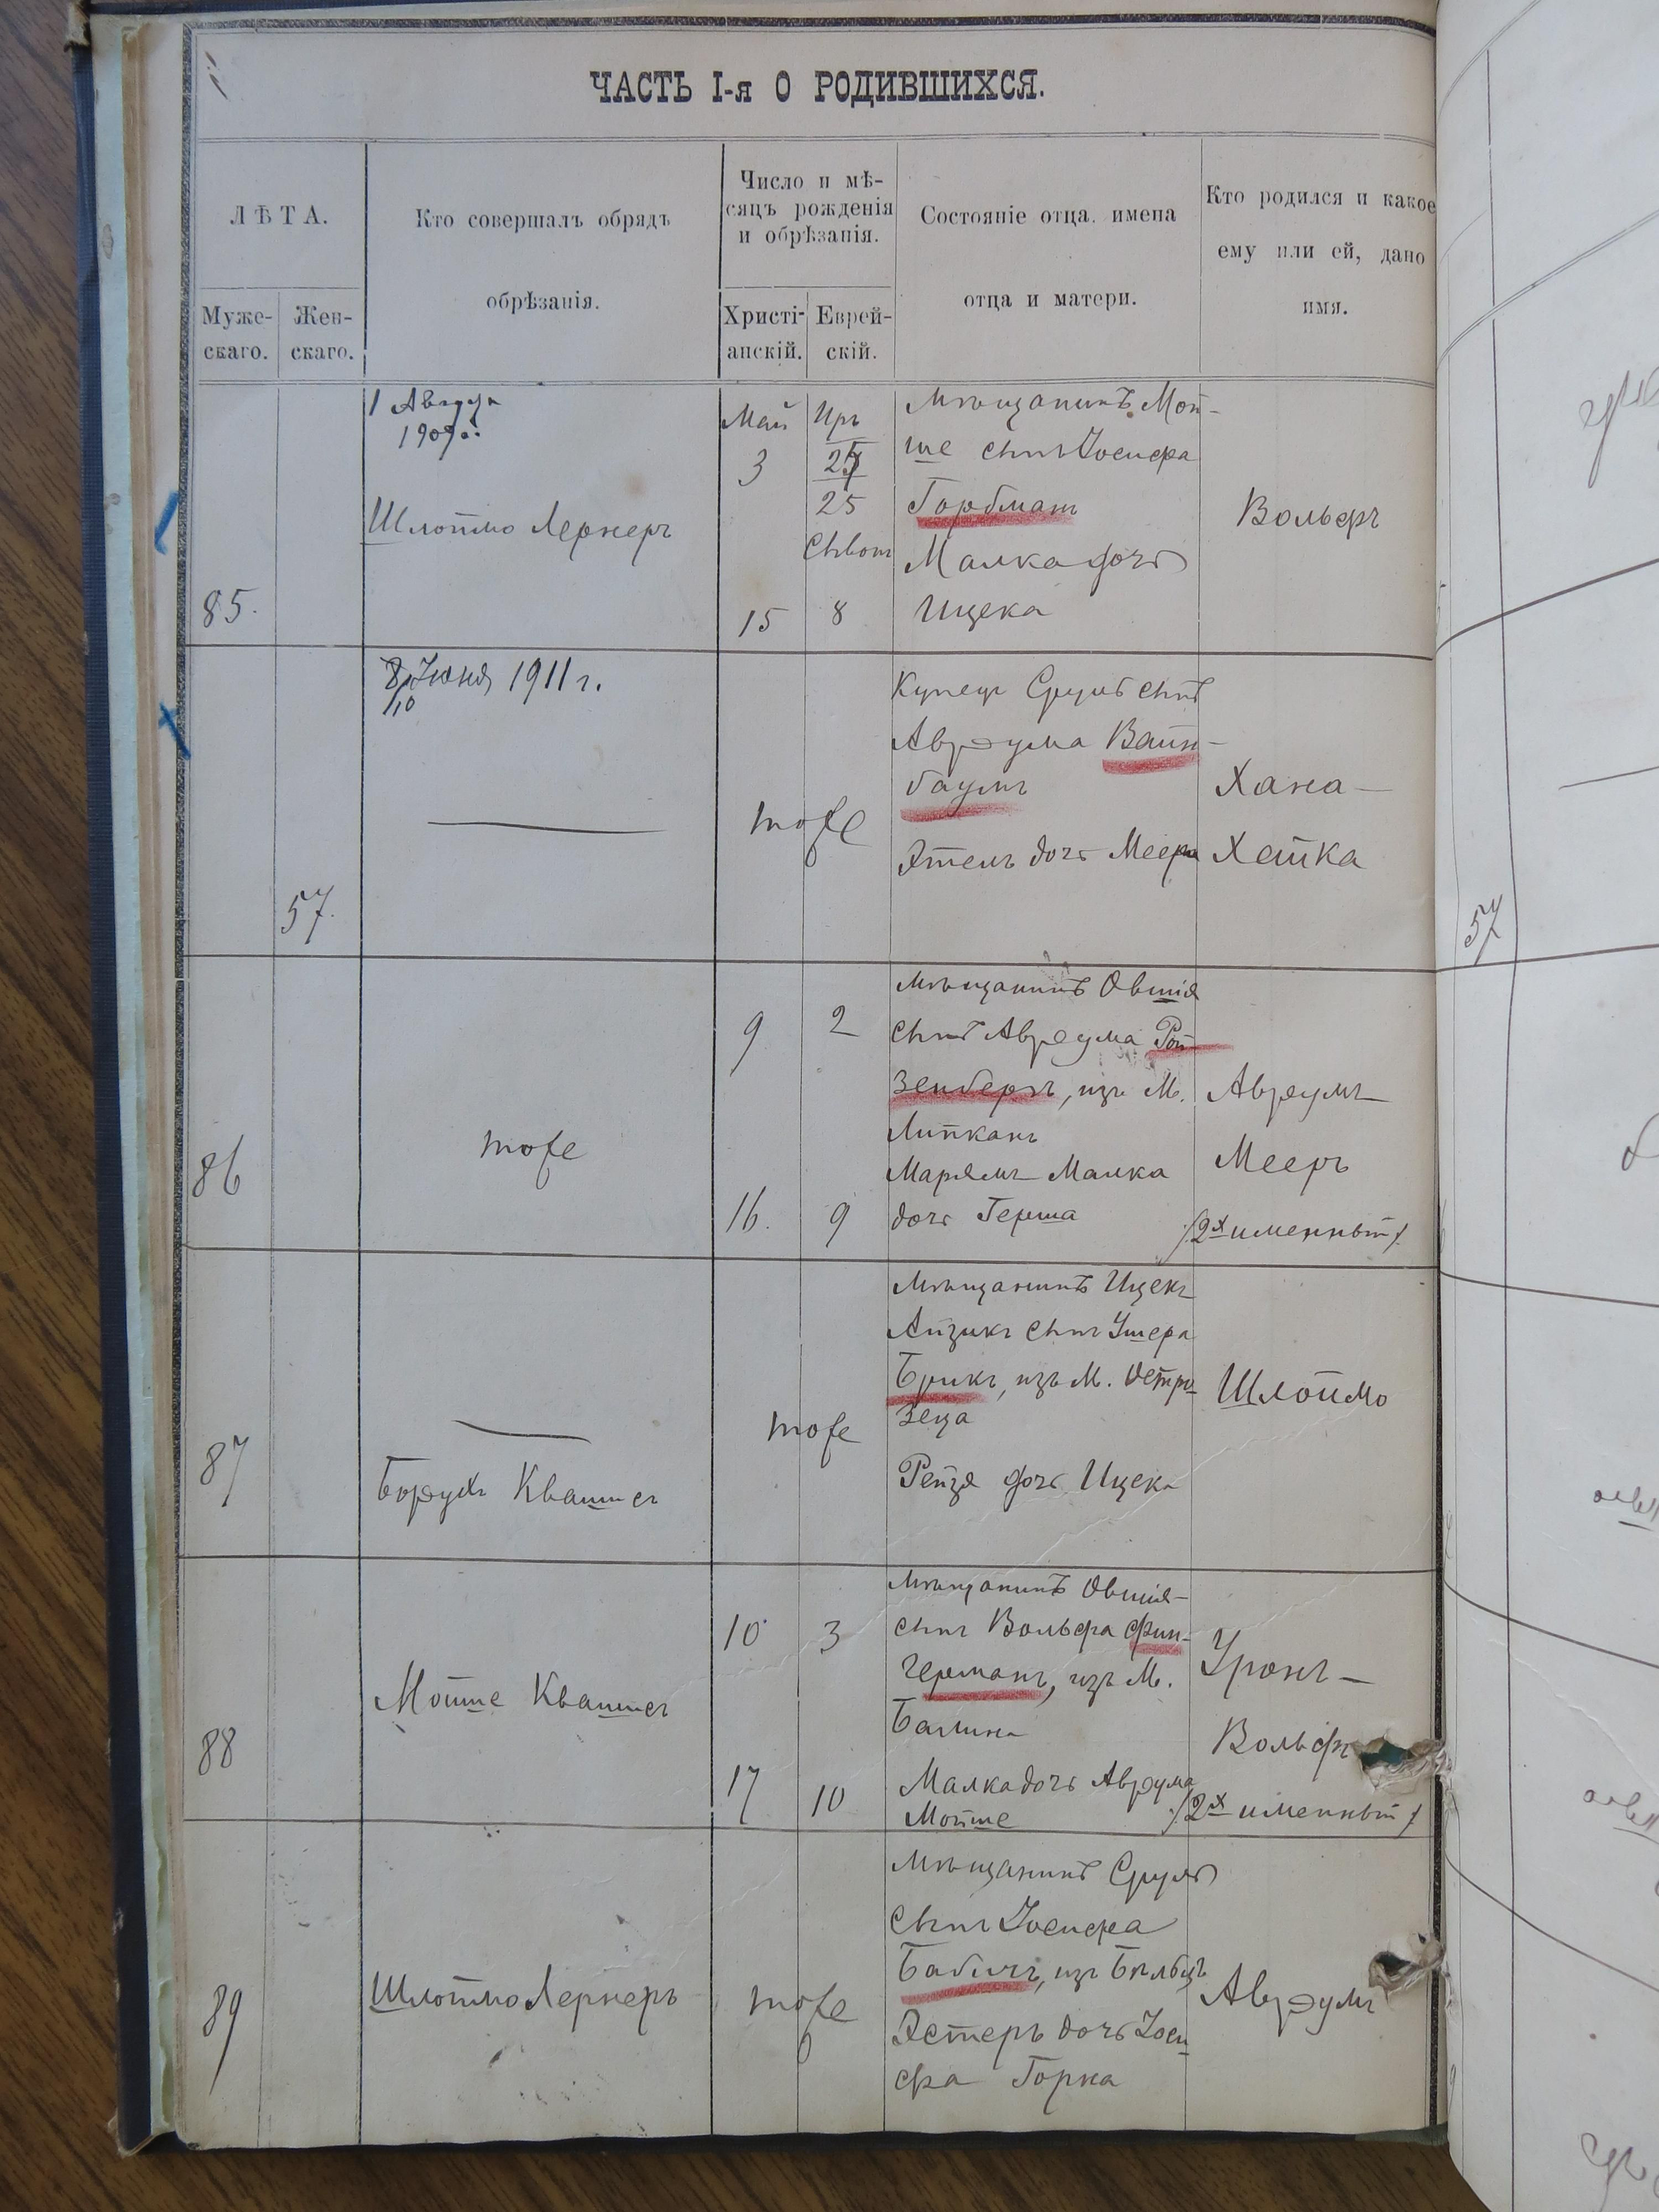 ЧАСТЬ I-я О РОДИВШИХСЯ.
ЛѢТА.
Муже-
скаго.
Жен-
скаго.
Кто совершалъ обрядъ
обрѣзанія.
Число и мѣ-
сяцъ рожденія
и обрѣзанія.
Христі-
анскій.
Еврей-
скій.
Состояніе отца, имена
отца и матери.
Кто родился и какое
ему или ей, дано
имя.
85.
1 Августа
1909 г.
Шлоймо Лернеръ
Май
3
15
Иръ
25
8
Мѣщанинъ Мой-
ше сынъ Іосифа
Гордманъ
Малка дочь
Ицека
Вольфъ
57.
8/10 Іюня 1911 г.
тоже
Купецъ Сруль сынъ
Аврума Вайн-
баумъ
Этель дочь Меера
Хана-
Хейка
57
86
тоже
9
16.
2
9
Мѣщанинъ Овшія
сынъ Аврума Рой-
зенбергъ, изъ М.
Липканъ
Марямъ-Малка
дочь Герша
Аврумъ-
Мееръ
/2х именный/
87
Борухъ Квашисъ
тоже
Мѣщанинъ Ицекъ-
Айзикъ сынъ Ушера
Брикъ, изъ М.
Рейзя дочь Ицека
Шлоймо
88
Мойше Квашисъ
10
17
3
10
Мѣщанинъ Овшія-
сынъ Вольфа Фин-
германъ, изъ М.
Балина
Малка дочь Аврума
Мойше
Уронъ-
Вольфъ
/2х именный/
89
Шлоймо Лернеръ
тоже
Мѣщанинъ Сруль
сынъ Іосифа
Бабичъ, изъ Бѣльцъ
Эстеръ дочь Іоси
фа Горка
Аврумъ